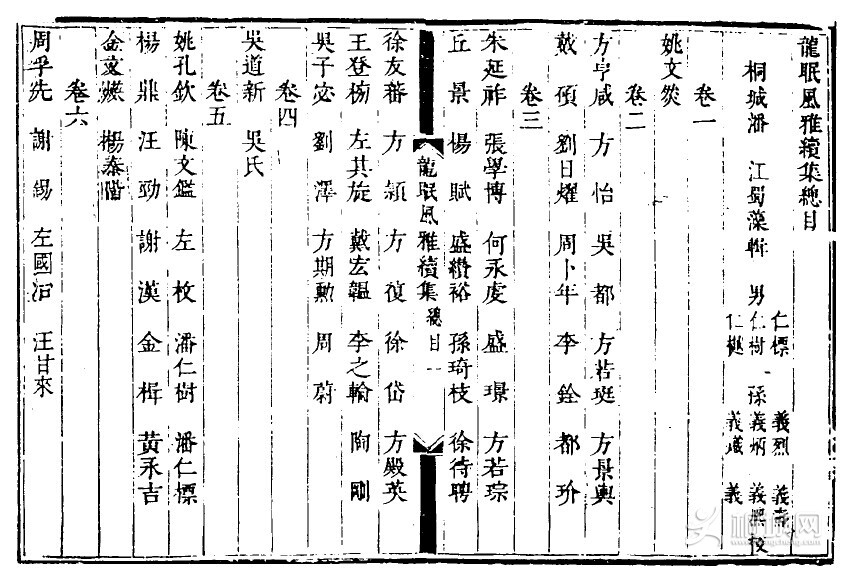 龍眠風雅續集總目
桐城潘 江蜀藻輯 男仁標 仁樹 仁樾 孫義烈 義炳 義 義 校
卷一
姚文燮
卷二
方亨咸 方怡 吳都 方若珽 方景輿
戴碩 劉日燿 周卜年 李銓 都玠
卷三
朱延祚 張學博 何永虔 盛璟 方若琮
丘景 楊賦 盛纘裕 孫琦枝 徐待聘
龍眠風雅續集 總目 一
徐友蕃 方穎 方復 徐岱 方殿英
王登 左其旋 戴宏韞 李之輪 陶剛
吳子宓 劉澤 方期勳 周蔚
卷四
吳道新 吳氏
卷五
姚孔欽 陳文鑑 左枚 潘仁樹 潘仁標
楊鼎 汪勁 謝漢 金楫 黃永吉
金文 楊泰階
卷六
周孚先 謝錫 左國 汪甘來